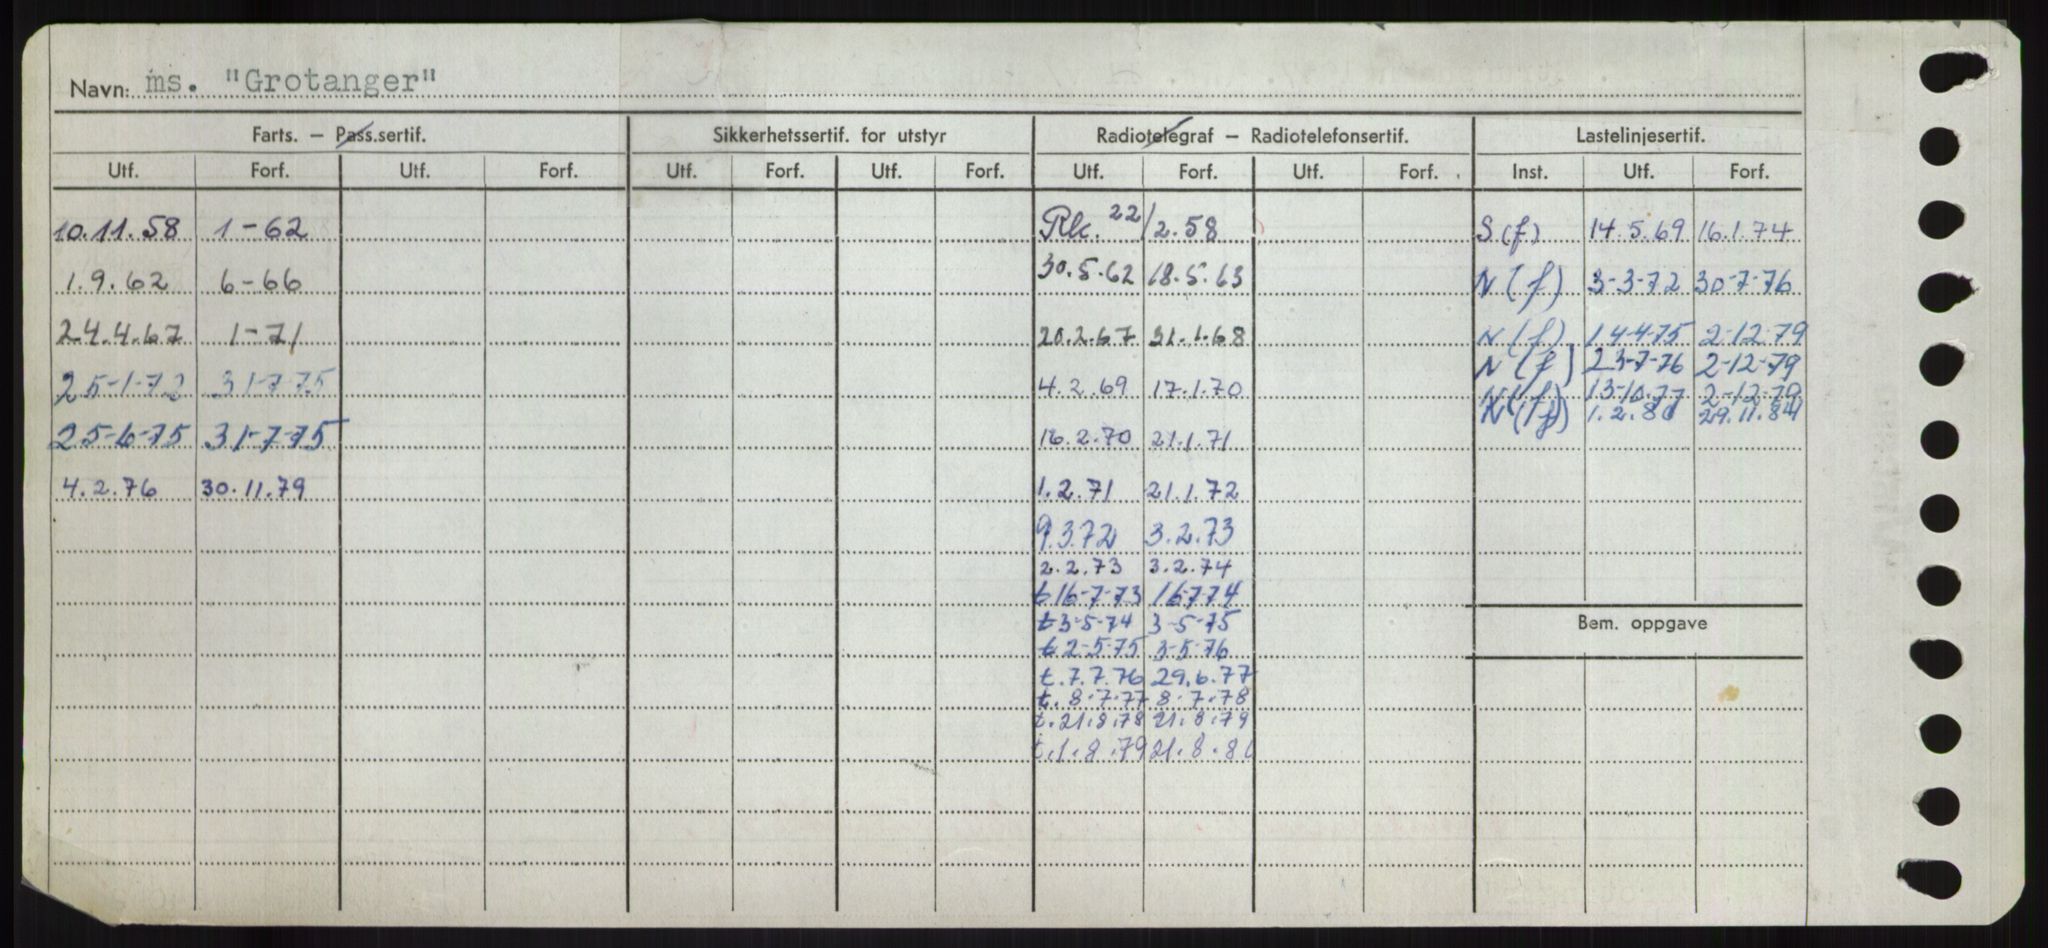 Navn: ms. "Grotanger"
Farts. – Pass.sertif. Sikkerhetssertif. for utstyr Radiotelegraf – Radiotelefonsertif. Lastelinjesertif.
Utf. Forf. Utf. Forf. Utf. Forf. Utf. Forf. Utf. Forf. Utf. Forf. Inst. Utf. Forf.
10.11.58 1-62 Rk. 22/2.58 S(f) 14.5.69 16.1.74
1.9.62 6-66 30.5.62 18.5.63 N(f) 3-3-72 30-7-76
24.4.67 1-71 20.2.67 31.1.68 N(f) 14-4-75 2-12-79
N(f) 23-7-76 2-12-79
25-1-72 31-7-75 4.2.69 17.1.70 N(f) 13-10-77 2-12-79
N(f) 1.2.80 29.11.84
25-6-75 31-7-75 16.2.70 21.1.71
4.2.76 30.11.79 1.2.71 21.1.72
9.3.72 3.2.73
2.2.73 3.2.74
t 16-7-73 16-7-74
t 3-5-74 3-5-75
t 2-5-75 3-5-76
t. 7.7.76 29.6.77
t. 8.7.77 8.7.78
t. 21.8.78 21.8.79
t. 1.8.79 21.8.80
Bem. oppgave